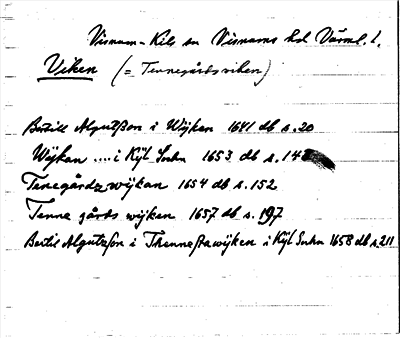 Visnum-Kils sn Visnums hd Värml. l.
Viken (= Tennegårdsviken)
Bertill Algutßon i Wijken 1641 db s. 20
Wijken .... i Kijl Sochn 1653 db s. 14
Tenegårdz wijkan 1654 db s. 152
Tenne gårds wijken 1657 db s. 197
Bertil Algutzson i Thennestawijken i Kijl Sochn 1658 db s. 211